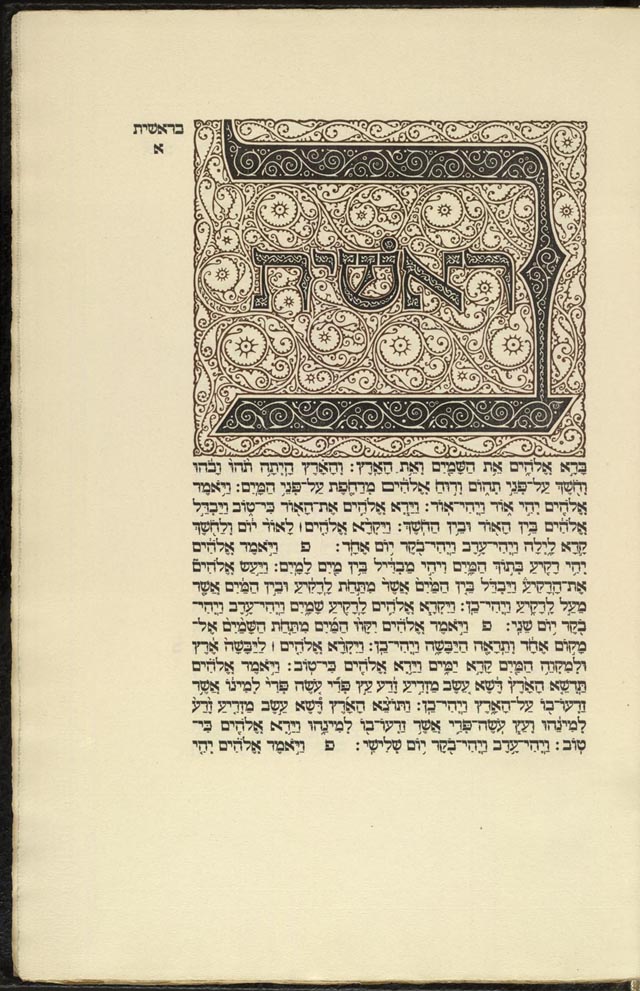 בראשית
א
בראשית
בָּרָ֣א אֱלֹהִ֑ים אֵ֥ת הַשָּׁמַ֖יִם וְאֵ֥ת הָאָֽרֶץ׃ וְהָאָ֗רֶץ הָיְתָ֥ה תֹ֙הוּ֙ וָבֹ֔הוּ
וְחֹ֖שֶׁךְ עַל־פְּנֵ֣י תְה֑וֹם וְר֣וּחַ אֱלֹהִ֔ים מְרַחֶ֖פֶת עַל־פְּנֵ֥י הַמָּֽיִם׃ וַיֹּ֥אמֶר
אֱלֹהִ֖ים יְהִ֣י א֑וֹר וַֽיְהִי־אֽוֹר׃ וַיַּ֧רְא אֱלֹהִ֛ים אֶת־הָא֖וֹר כִּי־ט֑וֹב וַיַּבְדֵּ֣ל
אֱלֹהִ֔ים בֵּ֥ין הָא֖וֹר וּבֵ֥ין הַחֹֽשֶׁךְ׃ וַיִּקְרָ֨א אֱלֹהִ֤ים׀ לָאוֹר֙ י֔וֹם וְלַחֹ֖שֶׁךְ
קָ֣רָא לָ֑יְלָה וַֽיְהִי־עֶ֥רֶב וַֽיְהִי־בֹ֖קֶר י֥וֹם אֶחָֽד׃ פ וַיֹּ֣אמֶר אֱלֹהִ֔ים
יְהִ֥י רָקִ֖יעַ בְּת֣וֹךְ הַמָּ֑יִם וִיהִ֣י מַבְדִּ֔יל בֵּ֥ין מַ֖יִם לָמָֽיִם׃ וַיַּ֣עַשׂ אֱלֹהִים֮
אֶת־הָרָקִיעַ֒ וַיַּבְדֵּ֗ל בֵּ֤ין הַמַּ֙יִם֙ אֲשֶׁר֙ מִתַּ֣חַת לָרָקִ֔יעַ וּבֵ֣ין הַמַּ֔יִם אֲשֶׁ֖ר
מֵעַ֣ל לָרָקִ֑יעַ וַֽיְהִי־כֵֽן׃ וַיִּקְרָ֧א אֱלֹהִ֛ים לָֽרָקִ֖יעַ שָׁמָ֑יִם וַֽיְהִי־עֶ֥רֶב וַֽיְהִי־
בֹ֖קֶר י֥וֹם שֵׁנִֽי׃ פ וַיֹּ֣אמֶר אֱלֹהִ֗ים יִקָּו֨וּ הַמַּ֜יִם מִתַּ֤חַת הַשָּׁמַ֙יִם֙ אֶל־
מָק֣וֹם אֶחָ֔ד וְתֵרָאֶ֖ה הַיַּבָּשָׁ֑ה וַֽיְהִי־כֵֽן׃ וַיִּקְרָ֨א אֱלֹהִ֤ים׀ לַיַּבָּשָׁה֙ אֶ֔רֶץ
וּלְמִקְוֵ֥ה הַמַּ֖יִם קָרָ֣א יַמִּ֑ים וַיַּ֥רְא אֱלֹהִ֖ים כִּי־טֽוֹב׃ וַיֹּ֣אמֶר אֱלֹהִ֗ים
תַּֽדְשֵׁ֤א הָאָ֙רֶץ֙ דֶּ֔שֶׁא עֵ֚שֶׂב מַזְרִ֣יעַ זֶ֔רַע עֵ֣ץ פְּרִ֞י עֹ֤שֶׂה פְּרִי֙ לְמִינ֔וֹ אֲשֶׁ֥ר
זַרְעוֹ־ב֖וֹ עַל־הָאָ֑רֶץ וַֽיְהִי־כֵֽן׃ וַתּוֹצֵ֨א הָאָ֜רֶץ דֶּ֠שֶׁא עֵ֣שֶׂב מַזְרִ֤יעַ זֶ֙רַע֙
לְמִינֵ֔הוּ וְעֵ֧ץ עֹֽשֶׂה־פְּרִ֛י אֲשֶׁ֥ר זַרְעוֹ־ב֖וֹ לְמִינֵ֑הוּ וַיַּ֥רְא אֱלֹהִ֖ים כִּי־
טֽוֹב׃ וַֽיְהִי־עֶ֥רֶב וַֽיְהִי־בֹ֖קֶר י֥וֹם שְׁלִישִֽׁי׃ פ וַיֹּ֣אמֶר אֱלֹהִ֗ים יְהִ֤י